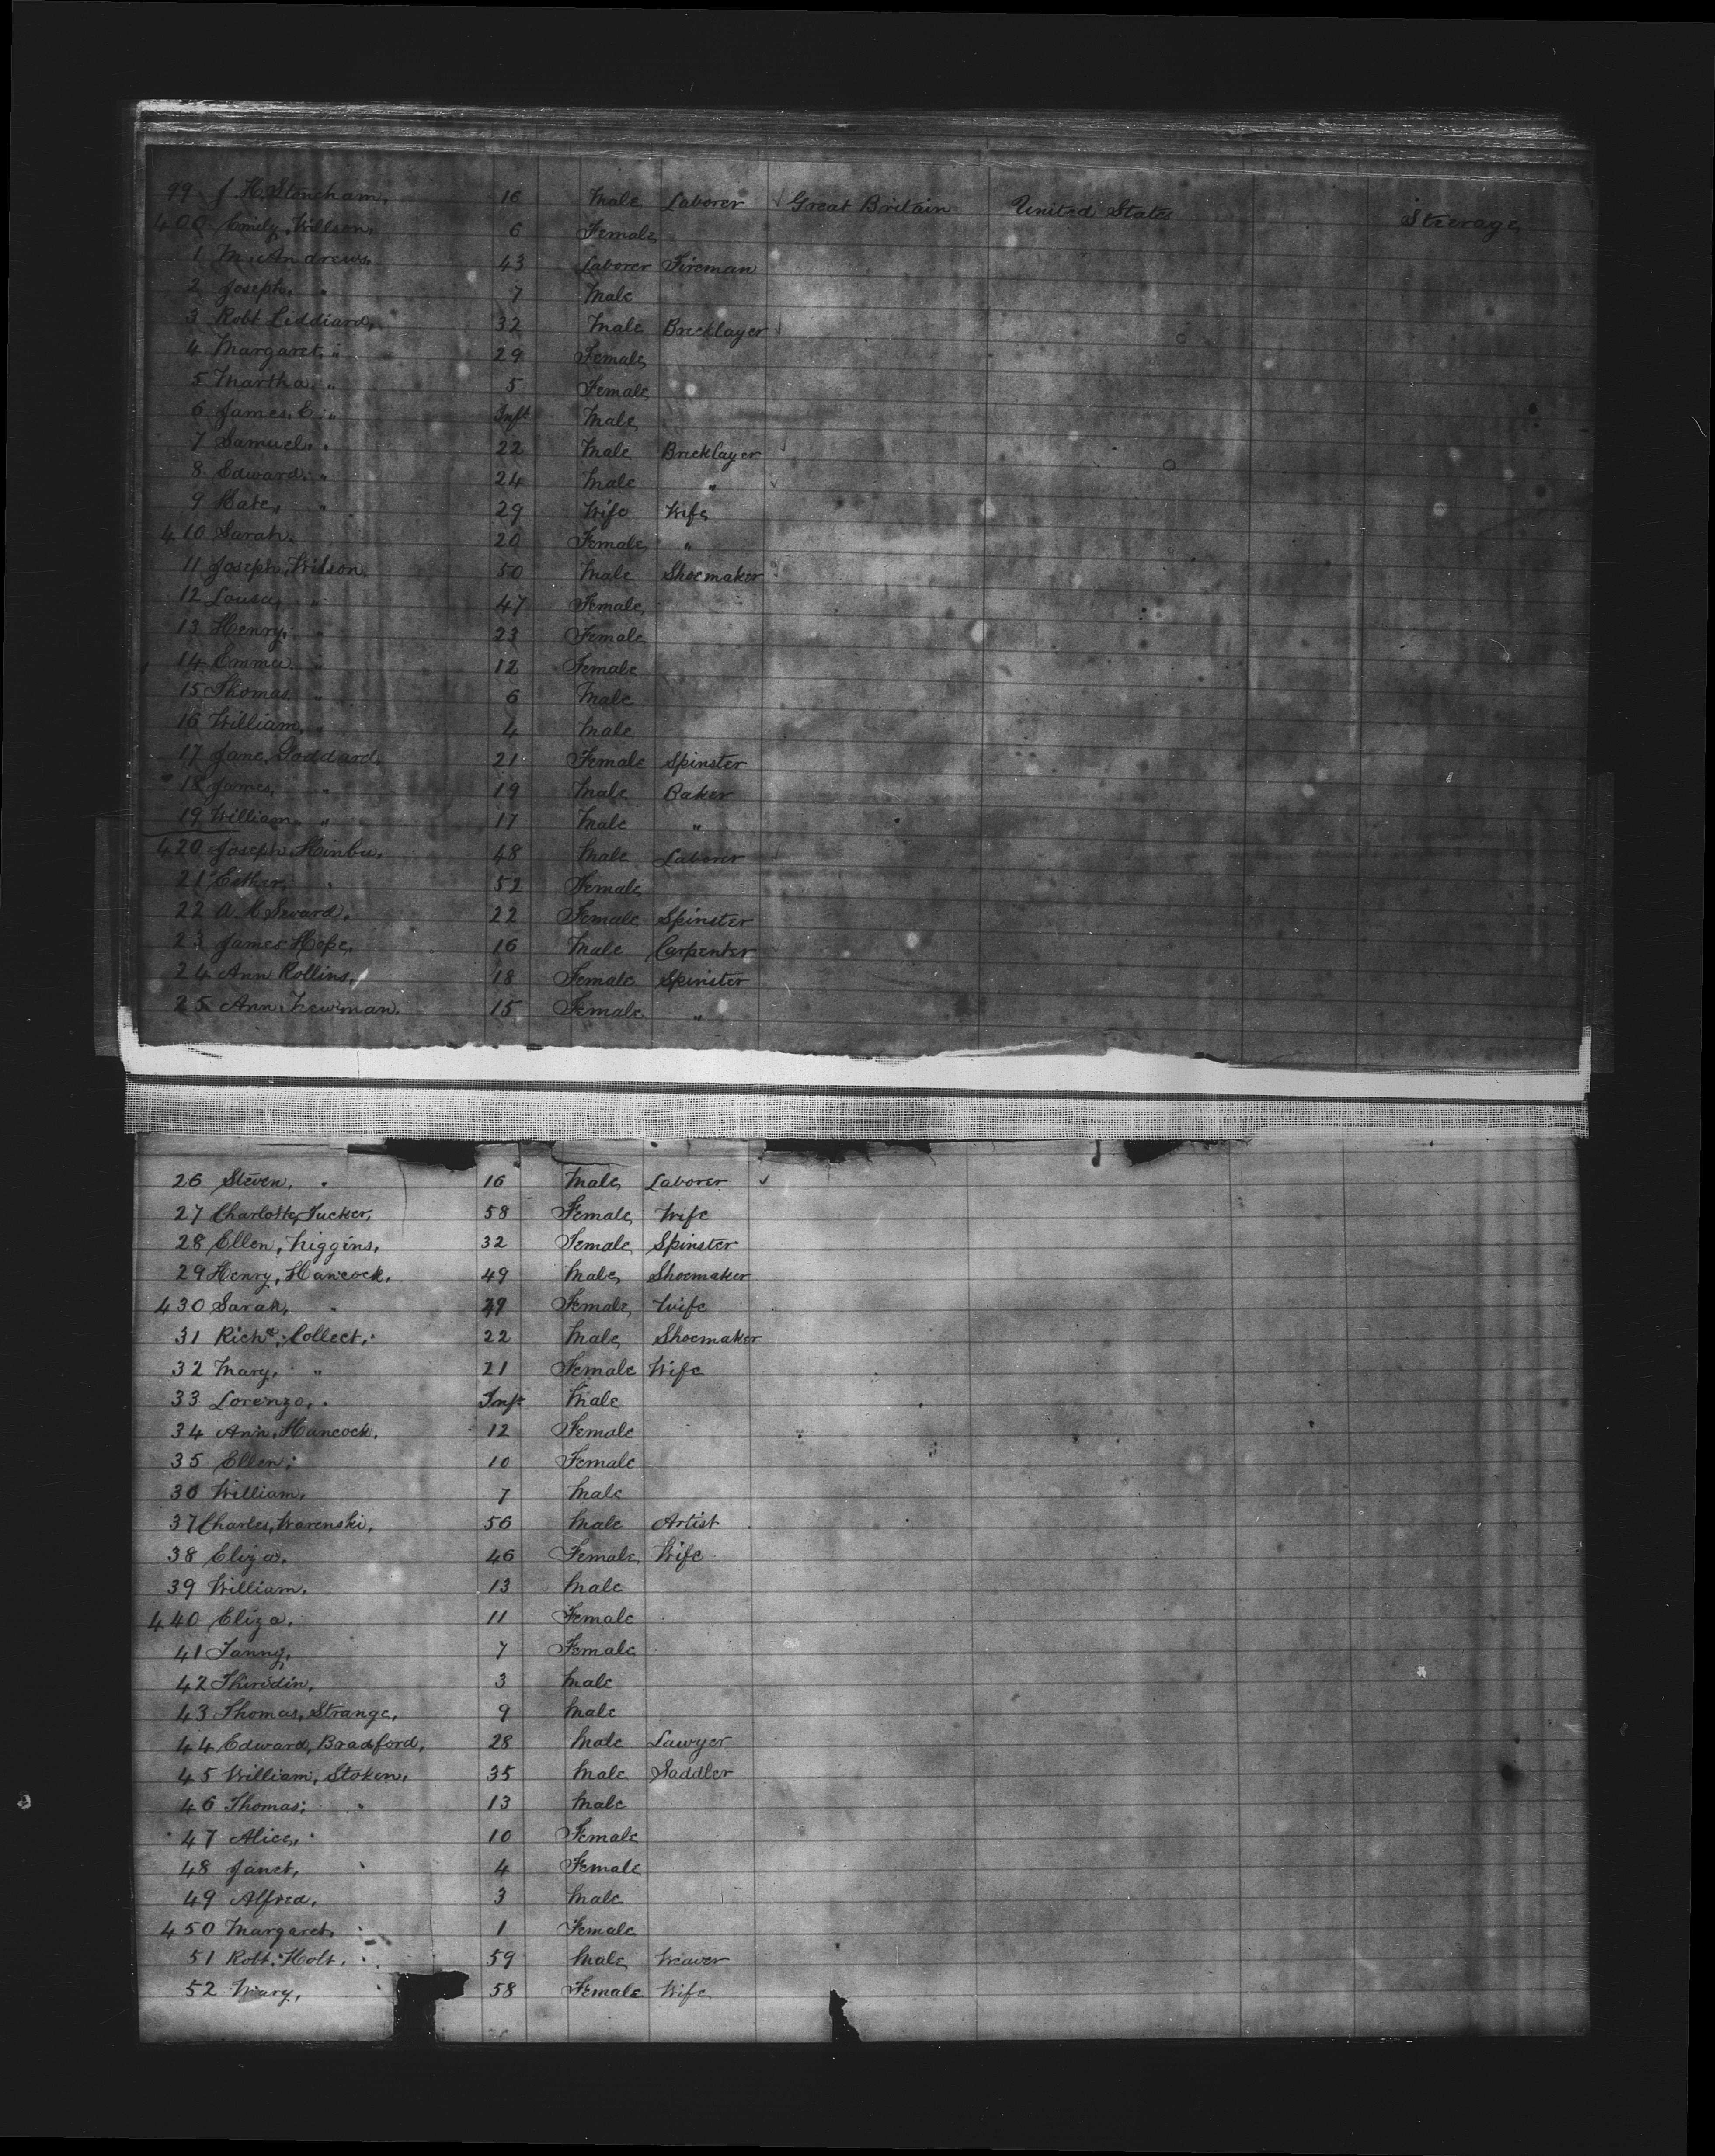 99 J. H. Stoneham, 16 Male Laborer Great Britain United States Steerage
400 Emily, Willson, 6 Female
1 M. Andrews, 43 Laborer Fireman
2 Joseph, " 7 Male
3 Robt Liddiard, 32 Male Bricklayer
4 Margaret, " 29 Female
5 Martha, " 5 Female
6 James, E. " Inft Male
7 Samuel, " 22 Male Bricklayer
8 Edward, " 24 Male "
9 Kate, " 29 Wife Wife
410 Sarah. 20 Female "
11 Joseph, Wilson. 50 Male Shoemaker
12 Lousa, " 47 Female
13 Henry, " 23 Female
14 Emma " 12 Female
15 Thomas " 6 Male
16 William, " 4 Male
17 Jane, Goddard, 21 Female Spinster
18 James, " 19 Male Baker
19 William " 17 Male "
420 Joseph, 48 Male Laborer
21 Esther, " 52 Female
22 A. M Seward, 22 Female Spinster
23 James Hope, 16 Male Carpenter
24 Ann Rollins, 18 Female Spinster
25 Ann. Newman. 15 Female "
26 Steven, " 16 Male Laborer
27 Charlotte, Tucker, 58 Female Wife
28 Ellen, Niggins, 32 Female Spinster
29 Henry, Hancock, 49 Male Shoemaker
430 Sarah, " 49 Female Wife
31 Richd, Collect, 22 Male Shoemaker
32 Mary, " 21 Female Wife
33 Lorenzo, " Inft Male
34 Ann, Hancock, 12 Female
35 Ellen, 10 Female
36 William, 7 Male
37 Charles, Warenski, 56 Male Artist
38 Eliza, 46 Female Wife
39 William, 13 Male
440 Eliza, 11 Female
41 Fanny, 7 Female
42 Thiridin, 3 Male
43 Thomas, Strange, 9 Male
44 Edward, Bradford, 28 Male Lawyer
45 William, Stoken, 35 Male Saddler
46 Thomas, " 13 Male
47 Alice, " 10 Female
48 Janet, " 4 Female
49 Alfred, 3 Male
450 Margaret, " 1 Female
51 Robt. Holt, 59 Male Weaver
52 Mary, 58 Female Wife